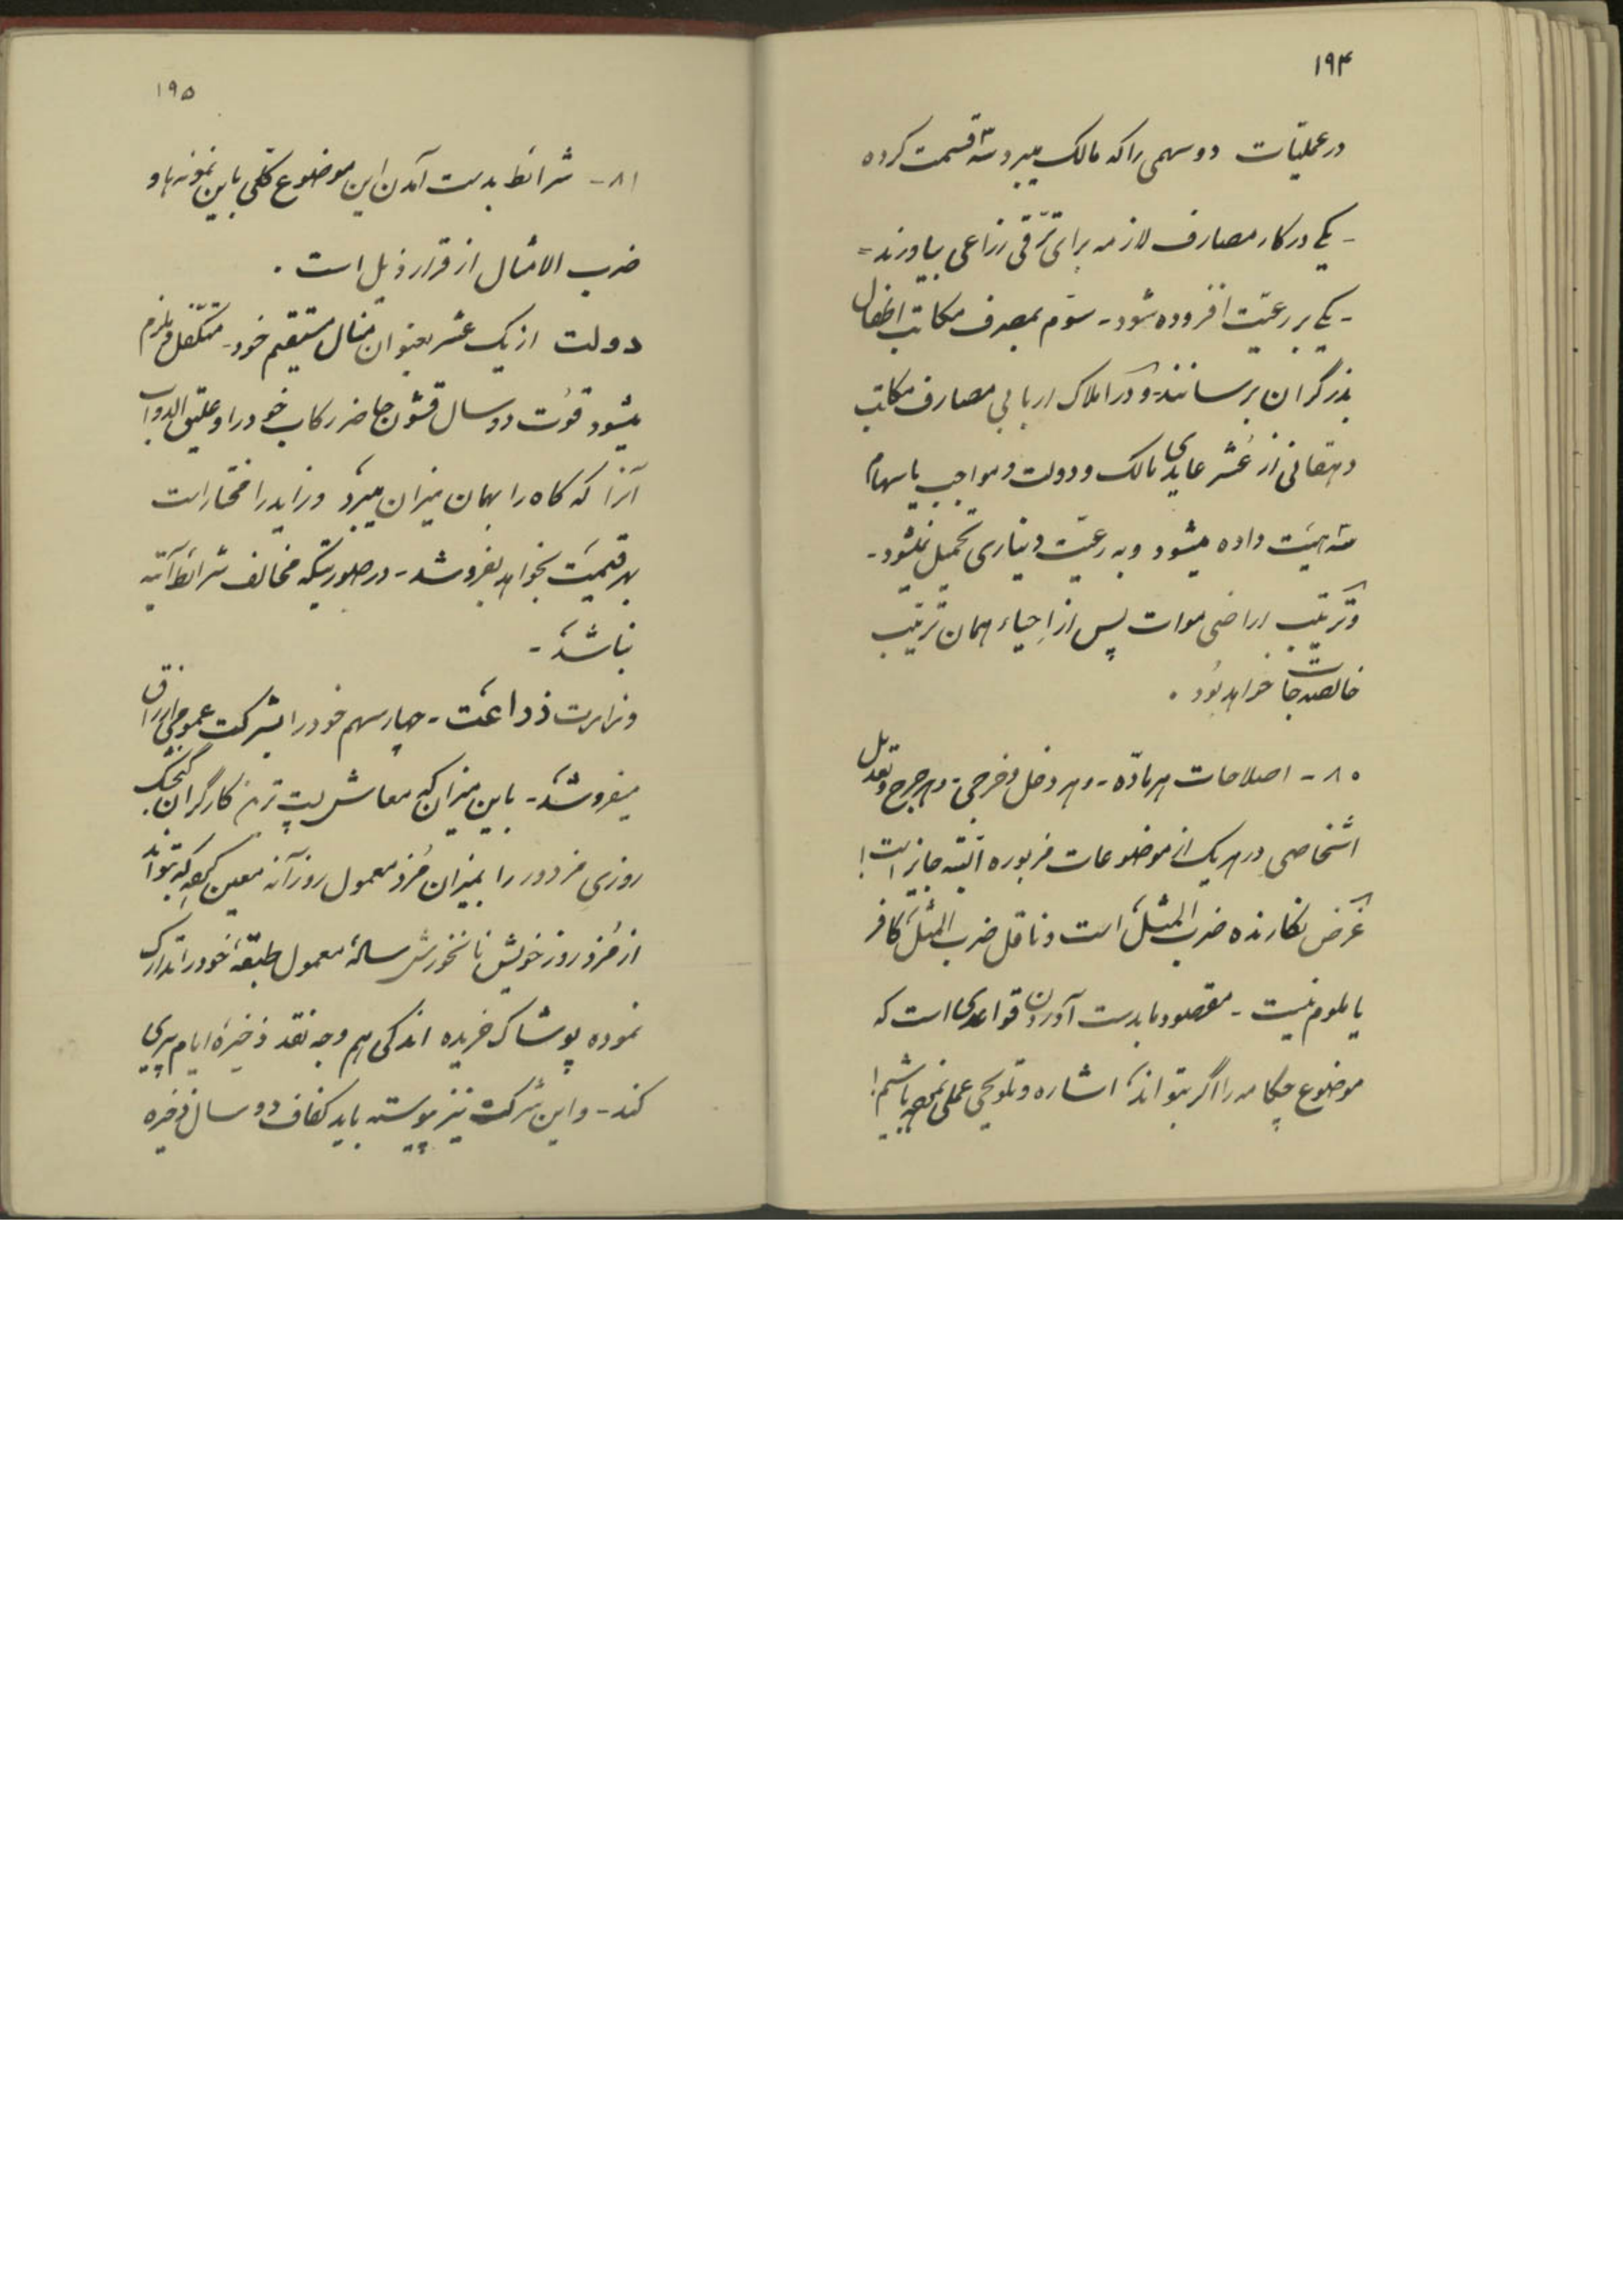 ۱۹۴
در عملیّات دو سهمی را که مالک میبرد سه قسمت کرده
- یکی در کار مصارف لازمه برای ترّقی زراعی بیاورند =
- یکی بر رعیّت افزوده شود - سوّم بمصرف مکاتب اطفال
بذرگران برسانند - و در املاک اربابی مصارف مکاتب
دهقانی از عُشر عایدی مالک و دولت و مواجب یا سهام
سه هیئت داده میشود و به رعیّت دیناری تحمیل نمیشود -
و ترتیب اراضی موات پس از اِحیاء همان ترتیب
خالصه جات خواهد بُود .
۸۰ - اصلاحات هر مادّه - و هر دخل و خرجی - و هر جرح و تعدیل
اشخاصی در هر یک از موضوعات مزبوره البتّه جایز است !
غرض نگارنده ضرب المثل است و ناقل ضرب المثل کافر
یا ملوم نیست - مقصود ما بدست آوردن قواعدی است که
موضوع چکامه را اگر بتواند اشاره و تلویحی عملی باشیم !
۱۹۵
۸۱ - شرائط بدست آمدن این موضوع کلّی باین نمونه ها و
ضرب الامثال از قرار ذیل است .
دولت از یک عُشر بعنوان منال مستقیم خود - متکفّل و ملزم
میشود قوُت دو سال قشون حاضر رکاب خود را و علیق الدواب
آنرا که کاه را بهمان میزان میبرد و زاید را مختار است
بهر قیمت بخواهد بفروشد - در صورتیکه مخالف شرائط آتیه
نباشد -
وزارت زراعت - چهار سهم خود را بشرکت عمومی ارزاق
میفروشد - باین میزان که معاش پست ترین کارگران
روزی مزدور را بمیزان مُزد معمول روزآنه معین که بتواند
از مُزد روز خویش نانخورش سالهٔ معمول طبقهٔ خود را تدارک
نموده پوشاک خریده اندکی هم وجه نقد ذخیرهٔ ایام پیری
کند - و این شرکت نیز پیوسته باید کفاف دو سال ذخیره